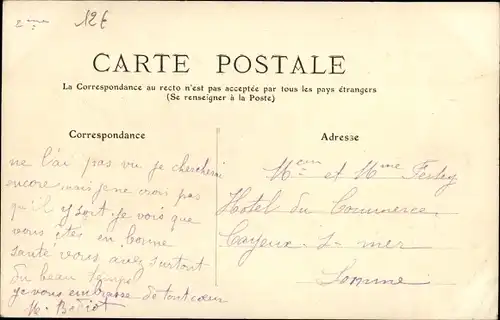 2ème
12€
CARTE POSTALE
La Correspondance au recto n'est pas acceptée par tous les pays étrangers
(Se renseigner à la Poste)
Correspondance
Adresse
ne l'ai pas vu je chercherai
encore mais je ne crois pas
qu'il y soit. je vois que
vous êtes en bonne
santé vous avez surtout
du beau temps
je vous embrasse de tout cœur
M.
Mr et Mme
Hotel du Commerce
Cayeux-s-mer
Somme